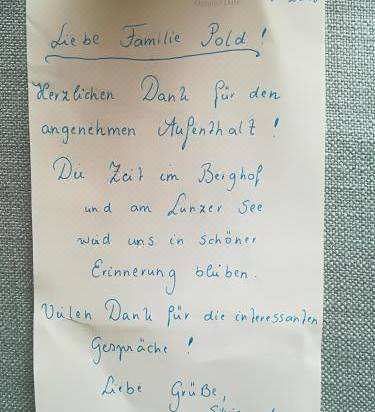 Liebe Familie Pold!
Herzlichen Dank für den
angenehmen Aufenthalt!
Die Zeit im Berghof
und am Lunzer See
wird uns in schöner
Erinnerung bleiben.
Vielen Dank für die interessanten
Gespräche!
Liebe Grüße,